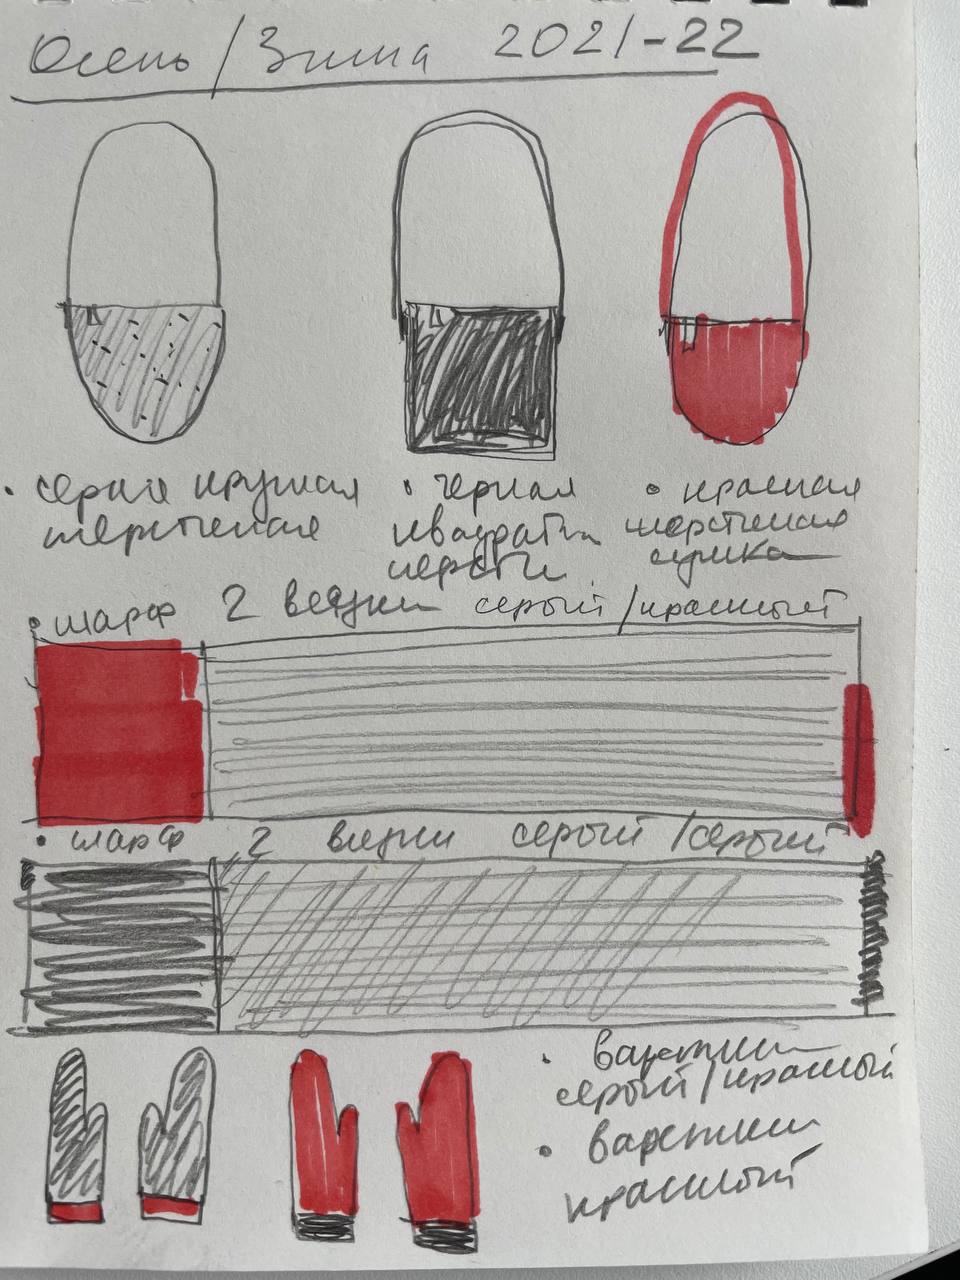 Осень/Зима 2021-22
• серая круглая
шерстяная
• черная
квадратн
шерсть
• красная
шерстяная
сумка
• шарф 2 вязки серый/красный
• шарф 2 вязки серый/серый
• варежки
серый/красный
• варежки
красный